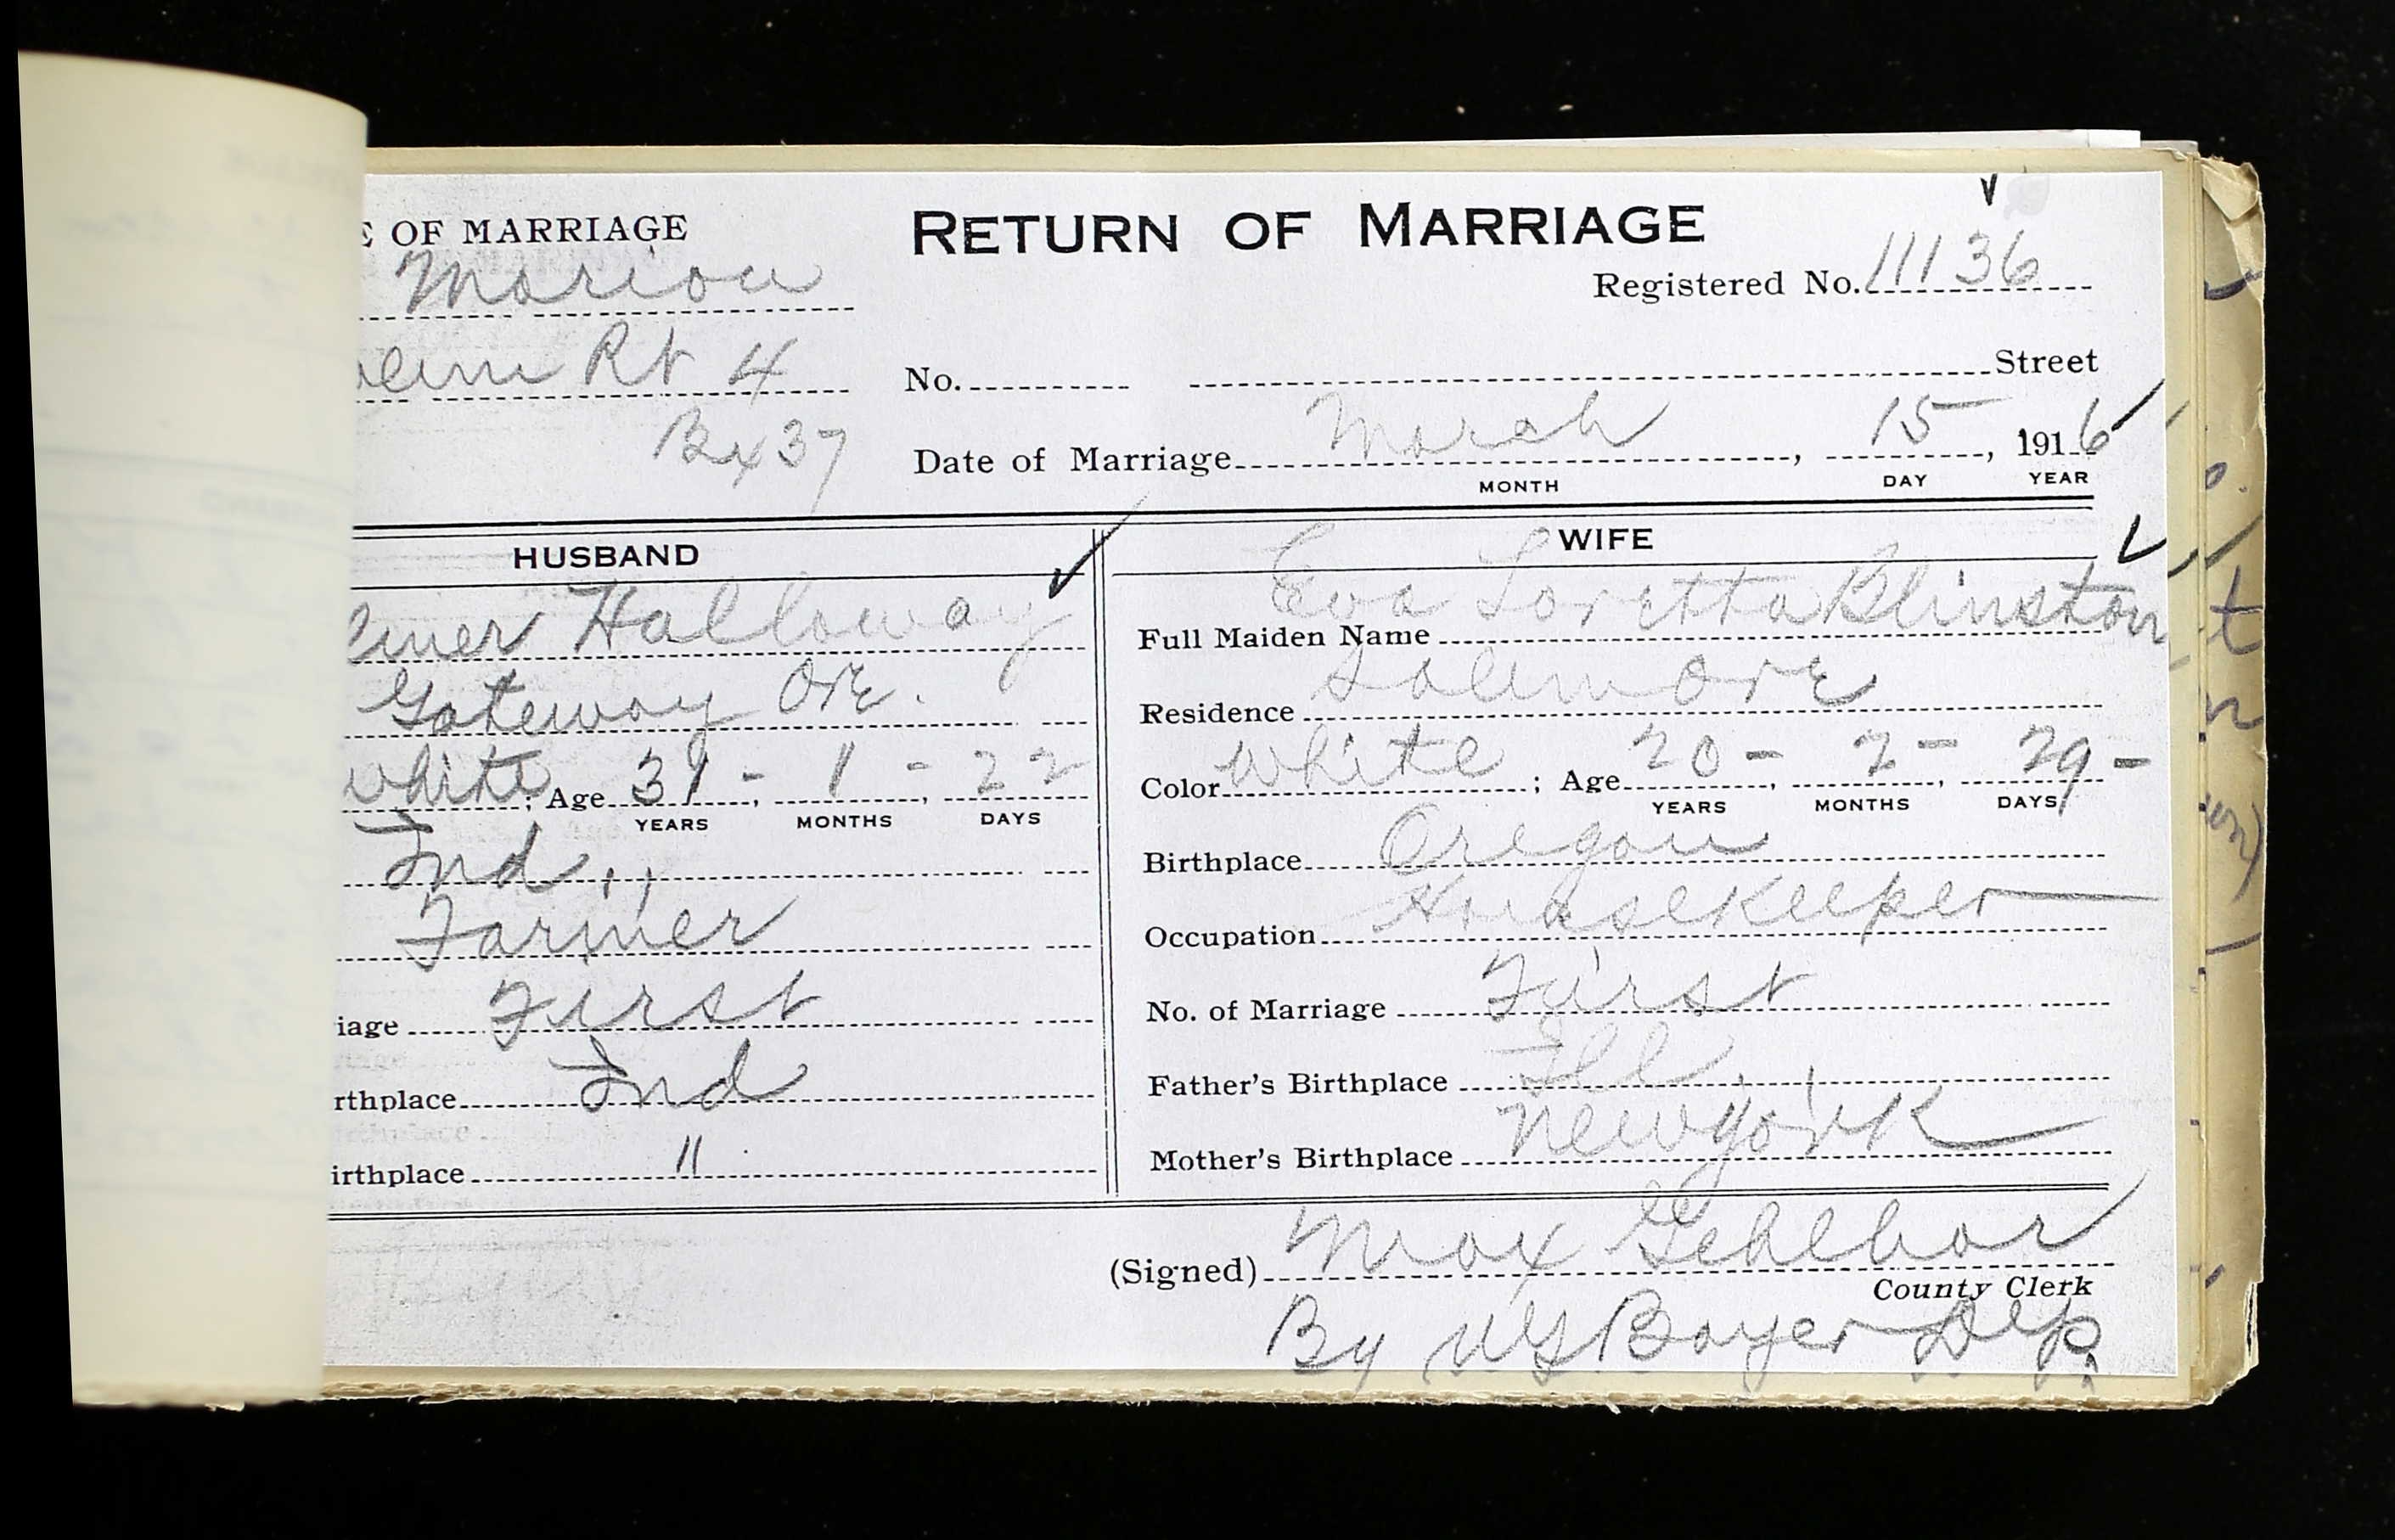 OF MARRIAGE
RETURN OF MARRIAGE
Marion
Registered No. 11136
Rt 4
No. Street
Bx 37
Date of Marriage March, 15, 1916
MONTH DAY YEAR
HUSBAND
WIFE
Halloway
Full Maiden Name Eva Loretta Blinston
Gateway Ore.
Residence Salem Ore
White; Age 31 - 1 - 22
YEARS MONTHS DAYS
Color White; Age 20 - 2 - 29 -
YEARS MONTHS DAYS
Ind,,
Birthplace Oregon
Farmer
Occupation Housekeeper
iage First
No. of Marriage First
rthplace Ind
Father's Birthplace Ill.
irthplace "
Mother's Birthplace New York
(Signed) Max Gehlhar
County Clerk
By UG Boyer Dep.